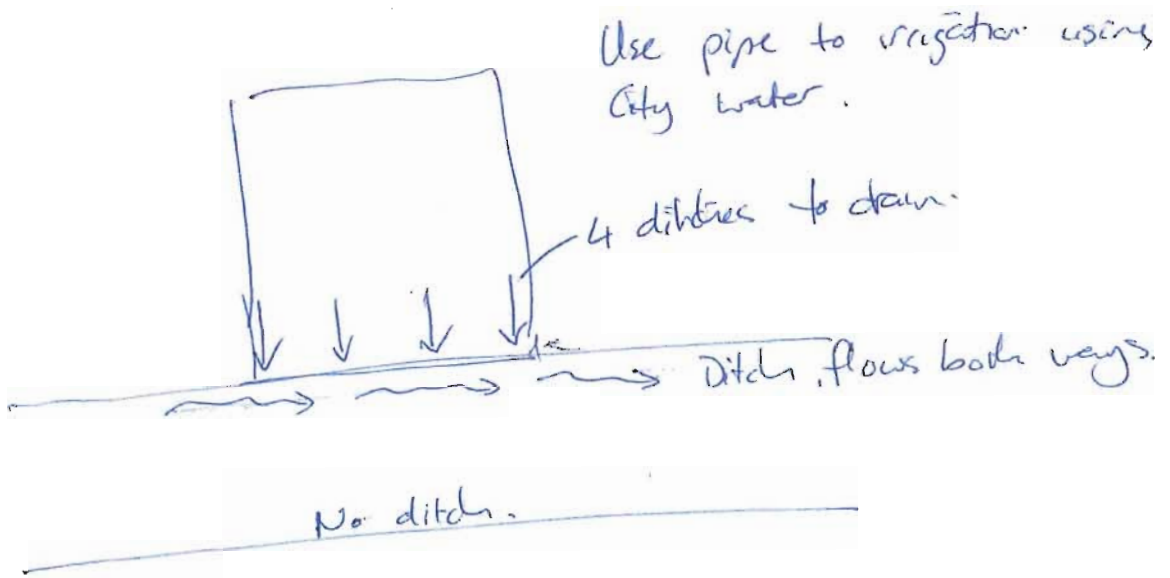 Use pipe to irrigation using
City water.
4 ditches to drain.
Ditch, flows both ways.
No ditch.